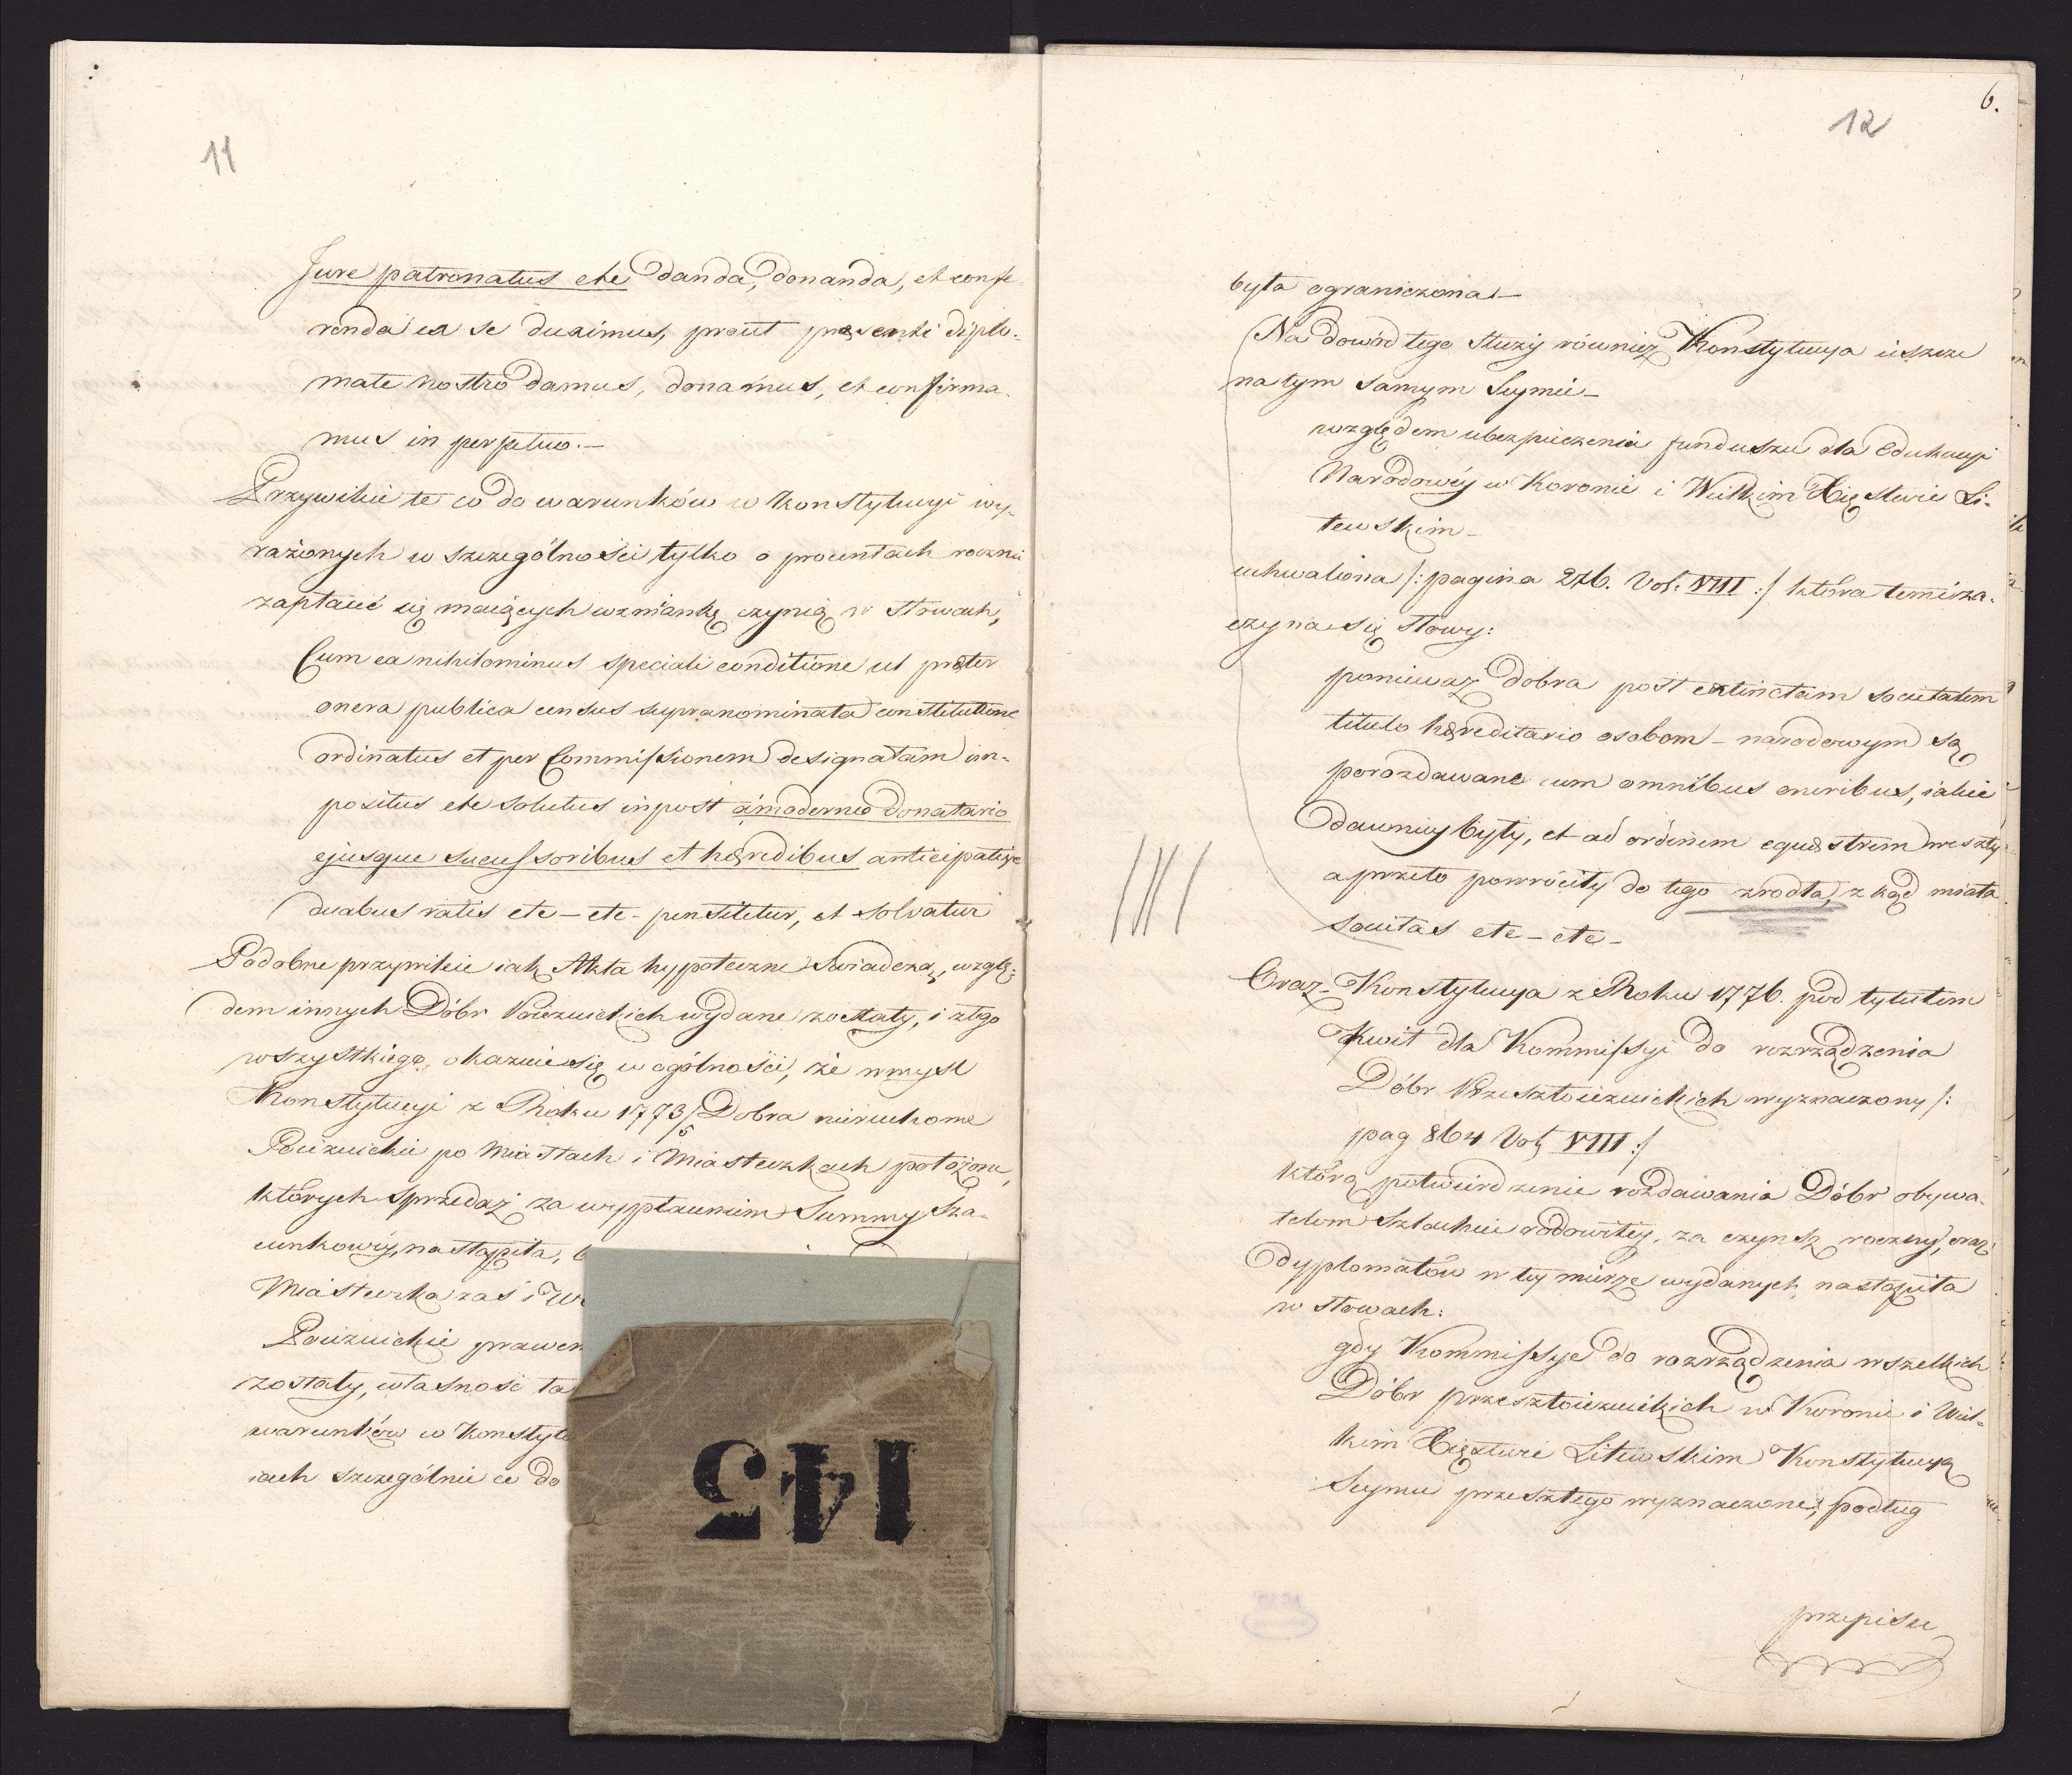 11
Jure patronatus etc danda, donanda, et confe-
renda ea se duximus, prout præsenti diplo-
mate nostro damus, donamus, et confirma-
mus in perpetuo.—
Przywileie te co do warunków w Konstytucyi wy-
rażonych w szczególności tylko o procentach rocznie
zapłacić się maiących wzmiankę czynią w słowach,
Cum ea nihilominus speciali conditione ut præter
onera publica census supranominata constitutione
ordinatus et per Commissionem designatam im-
positus etc solutus inpost a moderno donatario
ejusque successoribus et hæredibus anticipative
duabus ratis etc — etc — pensitetur, et solvatur
Podobne przywileie iak Akta hypoteczne świadczą, wzglę-
dem innych Dóbr Poiezuickich wydane zostały, i z tego
wszystkiego, okazuie się w ogólności, że w myśl
Konstytucyi z Roku 1773/5 Dobra nieruchome
Poiezuickie po Miastach i Miasteczkach położone,
których sprzedaż za wypłaceniem Summy Sza-
cunkowéy, nastąpiła, b
Miasteczka zaś i W
Poiezuickie prawem
zostały, własność ta
warunków w Konstytu
iach szczególnie co do
145
6.
12
była ograniczona.—
Na dowód tego służy również Konstytucya ieszcze
na tym samym Seymie—
względem ubezpieczenia funduszu dla Edukacyi
Narodowéy w Koronie i Wielkim Xięstwie Li-
tewskim—
uchwalona /: pagina 276. Vol: VIII :/ która temi za-
czyna się słowy:
ponieważ Dobra post extinctam societatem
titulo hæreditario osobom — narodowym są
porozdawane cum omnibus oneribus, iakie
dawniey były, et ad ordinem equestrem weszły
a przeto powróciły do tego zrodła, z kąd miała
societas etc — etc —
Oraz Konstytucya z Roku 1776. pod tytułem
Kwit dla Kommissyi do rozrządzenia
Dóbr Przeszłoiezuickich wyznaczony /:
pag 864 Vol VIII :/
którą potwierdzenie rozdawania Dóbr obywa-
telom Szlachcie rodowitey, za czynsz roczny, oraz
dyplomatów w tey mierze wydanych nastąpiła
w słowach:
gdy Kommissye do rozrządzenia wszelkich
Dóbr przeszłoiezuickich w Koronie i Wiel-
kim Xięztwie Litewskim Konstytucyą
Seymu przeszłego wyznaczone, podług
przepisu